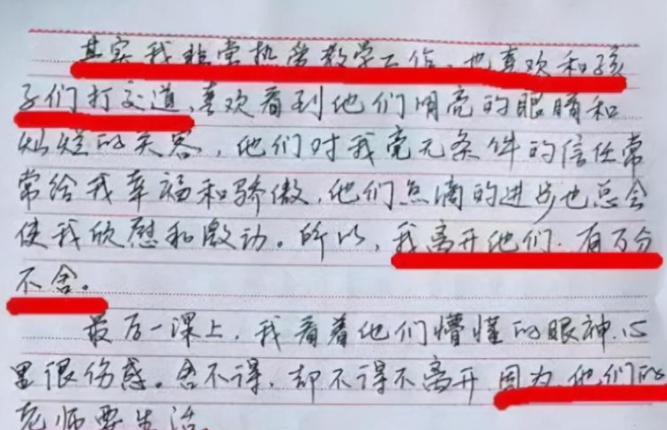 其实我非常热爱教学工作，也喜欢和孩
子们打交道，喜欢看到他们明亮的眼睛和
灿烂的笑容，他们对我毫无条件的信任常
常给我幸福和骄傲，他们点滴的进步也总会
使我欣慰和激动。所以，我离开他们，有万分
不舍。
最后一课上，我看着他们懵懂的眼神，心
里很伤感。舍不得，却不得不离开，因为他们的
老师要生活。